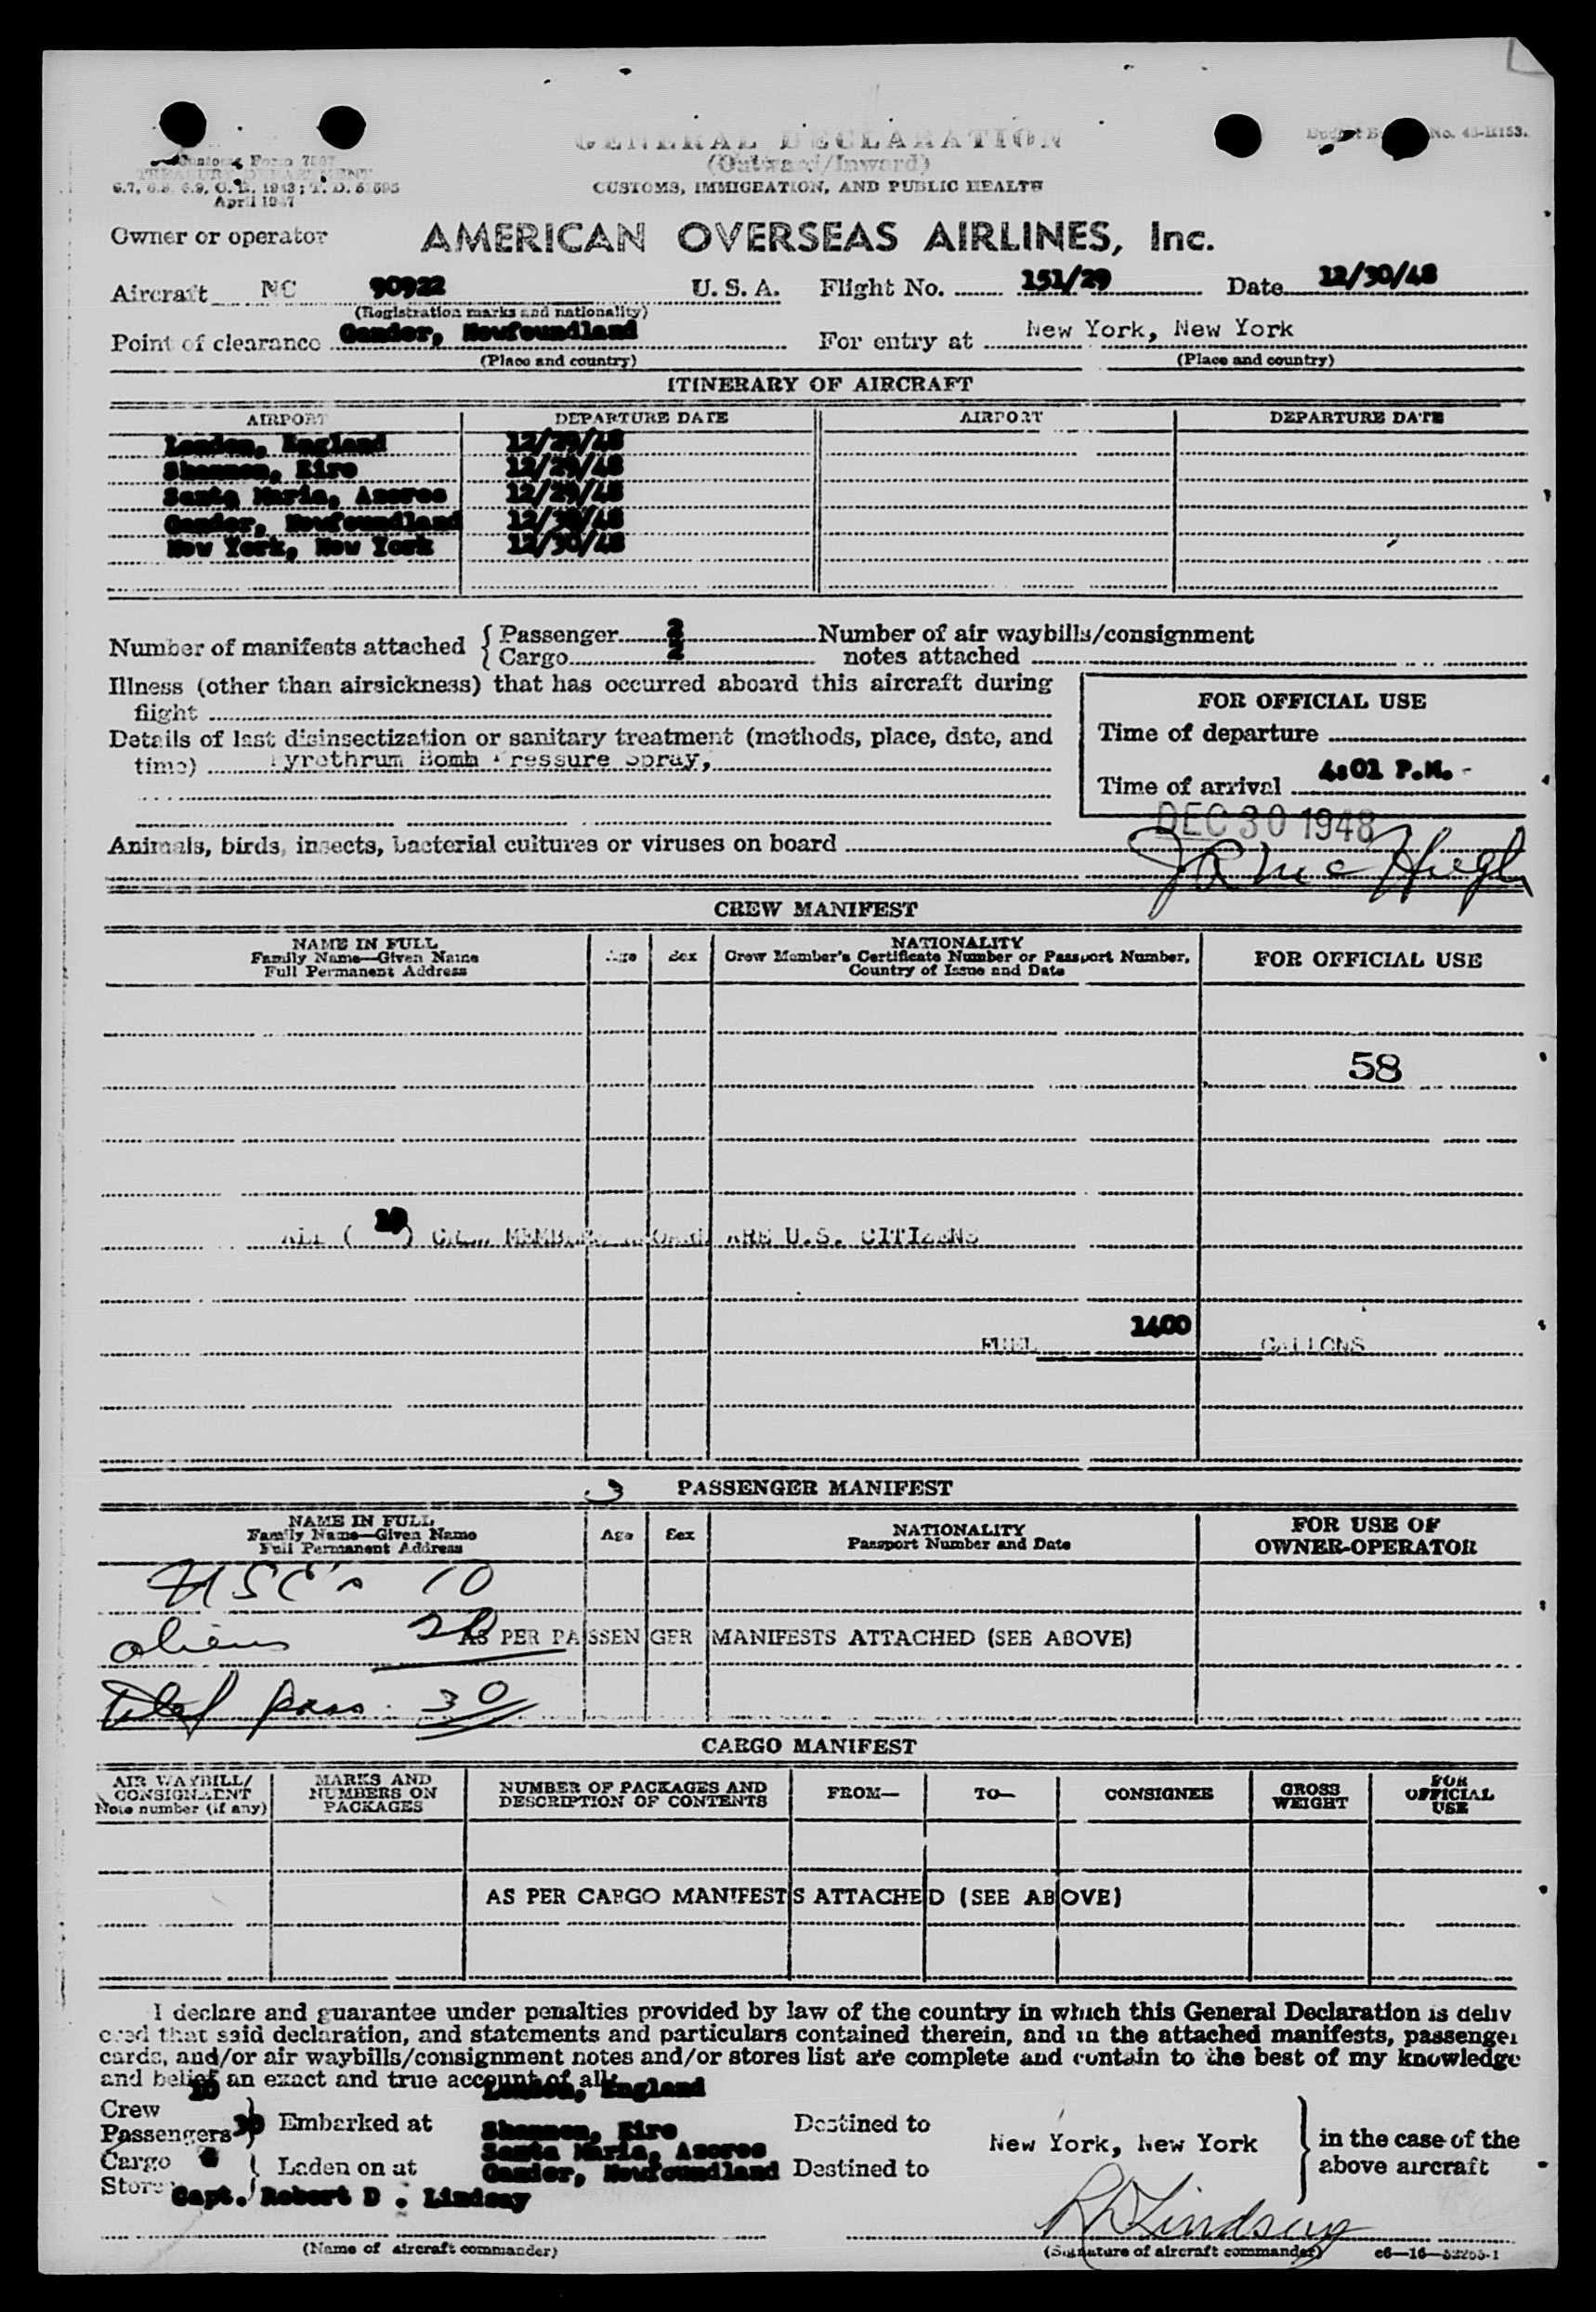 GENERAL DECLARATION
(Outward/Inward)
CUSTOMS, IMMIGRATION, AND PUBLIC HEALTH
Customs Form 7507
TREASURY DEPARTMENT
6.7, 6.8, 6.9, C. R. 1943; T. D. 51595
April 1947
No. 43-R153.
Owner or operator AMERICAN OVERSEAS AIRLINES, Inc.
Aircraft NC 90922 U. S. A. Flight No. 151/29 Date 12/30/48
(Registration marks and nationality)
Point of clearance Gander, Newfoundland For entry at New York, New York
(Place and country) (Place and country)
ITINERARY OF AIRCRAFT
AIRPORT DEPARTURE DATE AIRPORT DEPARTURE DATE
London, England 12/29/48
Shannon, Eire 12/29/48
Santa Maria, Azores 12/29/48
Gander, Newfoundland 12/30/48
New York, New York 12/30/48
Number of manifests attached { Passenger 2 Number of air waybills/consignment
Cargo 2 notes attached
Illness (other than airsickness) that has occurred aboard this aircraft during
flight
Details of last disinsectization or sanitary treatment (methods, place, date, and
time) Pyrethrum Bomb Pressure Spray,
FOR OFFICIAL USE
Time of departure
Time of arrival 4:01 P.M.
DEC 30 1948
Animals, birds, insects, bacterial cultures or viruses on board
J R McHugh
CREW MANIFEST
NAME IN FULL
Family Name—Given Name
Full Permanent Address
Age Sex
NATIONALITY
Crew Member's Certificate Number or Passport Number,
Country of Issue and Date
FOR OFFICIAL USE
58
ALL ( 10 ) CREW MEMBERS ABOARD ARE U.S. CITIZENS
FUEL 1400 GALLONS
PASSENGER MANIFEST
NAME IN FULL
Family Name—Given Name
Full Permanent Address
Age Sex
NATIONALITY
Passport Number and Date
FOR USE OF
OWNER-OPERATOR
USC's 10
aliens 20 AS PER PASSENGER MANIFESTS ATTACHED (SEE ABOVE)
Total pass. 30
CARGO MANIFEST
AIR WAYBILL/
CONSIGNMENT
Note number (if any)
MARKS AND
NUMBERS ON
PACKAGES
NUMBER OF PACKAGES AND
DESCRIPTION OF CONTENTS
FROM— TO— CONSIGNEE
GROSS
WEIGHT
FOR
OFFICIAL
USE
AS PER CARGO MANIFESTS ATTACHED (SEE ABOVE)
I declare and guarantee under penalties provided by law of the country in which this General Declaration is deliv
ered that said declaration, and statements and particulars contained therein, and in the attached manifests, passenger
cards, and/or air waybills/consignment notes and/or stores list are complete and contain to the best of my knowledge
and belief an exact and true account of all:
Crew 10 London, England
Passengers 30 } Embarked at Shannon, Eire Destined to
Santa Maria, Azores New York, New York } in the case of the
Cargo { Laden on at Gander, Newfoundland Destined to above aircraft
Stores
Capt. Robert D. Lindsay
R D Lindsay
(Name of aircraft commander) (Signature of aircraft commander) c6—16—52255-1